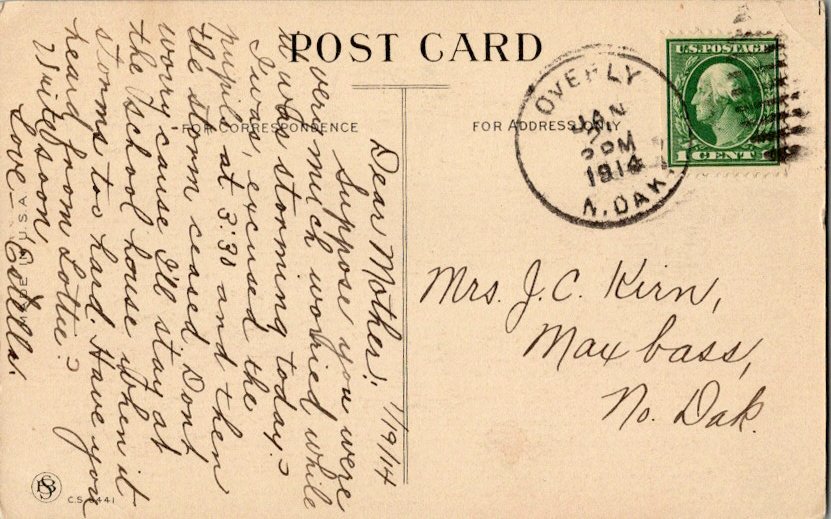 POST CARD
FOR CORRESPONDENCE
FOR ADDRESS ONLY
1/19/14
Dear Mother:
Suppose you were
very much worried while
it was storming today?
I was, excused the
pupils at 3:30 and then
the storm ceased. Dont
worry cause I'll stay at
the school house when it
storms too hard. Have you
heard from Lottie?
Write soon,
Love - Estella.
MADE IN U.S.A.
C.S. 3441
OVERLY
JAN
2 PM
1914
N. DAK.
U.S. POSTAGE
1 CENT
Mrs. J.C. Kirn,
Maxbass,
No. Dak.